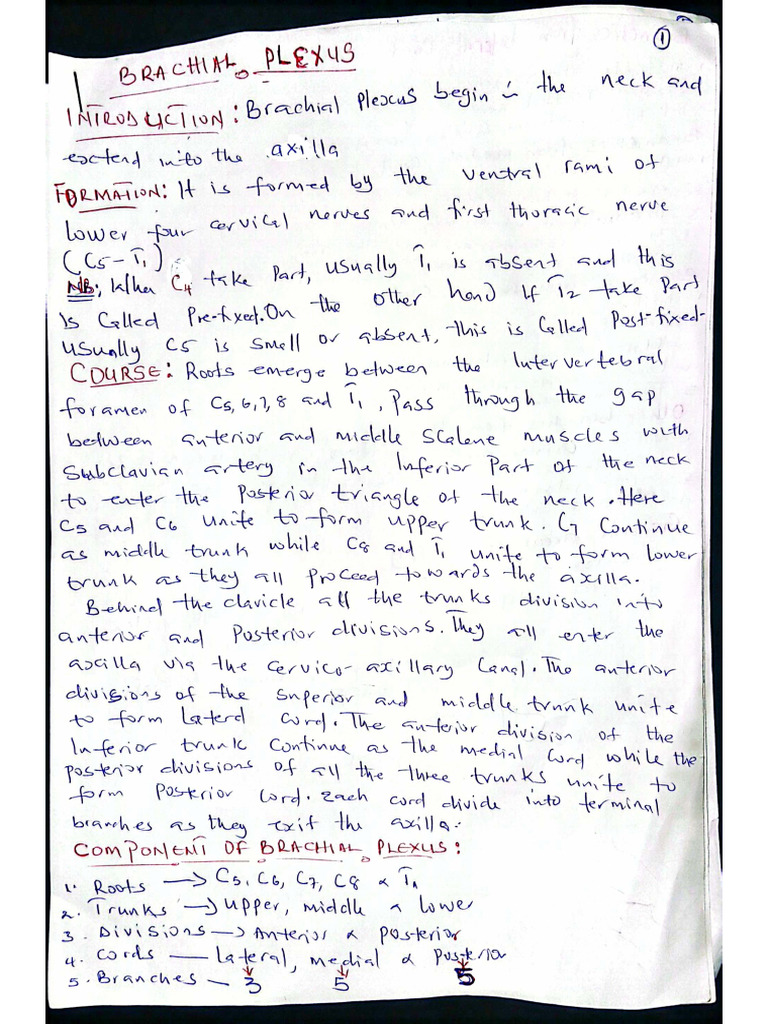 1
BRACHIAL PLEXUS
INTRODUCTION: Brachial Plexus begin in the neck and
extend into the axilla
FORMATION: It is formed by the ventral rami of
lower four cervical nerves and first thoracic nerve
(C5 - T1)
NB: When C4 take Part, usually T1 is absent and this
is Called Pre-fixed. On the other hand If T2 take Part
usually C5 is small or absent, this is Called Post-fixed.
COURSE: Roots emerge between the Intervertebral
foramen of C5, 6, 7, 8 and T1, Pass through the gap
between anterior and middle Scalene muscles with
Subclavian artery in the Inferior Part of the neck
to enter the Posterior triangle of the neck. Here
C5 and C6 unite to form upper trunk. C7 Continue
as middle trunk while C8 and T1 unite to form lower
trunk as they all proceed towards the axilla.
Behind the clavicle all the trunks division into
anterior and Posterior divisions. They all enter the
axilla via the Cervico-axillary Canal. The anterior
divisions of the superior and middle trunk unite
to form Lateral Cord. The anterior division of the
Inferior trunk Continue as the medial Cord while the
posterior divisions of all the three trunks unite to
form Posterior Cord. Each cord divide into terminal
branches as they exit the axilla.
COMPONENT OF BRACHIAL PLEXUS:
1. Roots → C5, C6, C7, C8 & T1
2. Trunks → upper, middle & lower
3. Divisions → Anterior & posterior
4. Cords — Lateral, medial & Posterior
5. Branches - 3 5 5